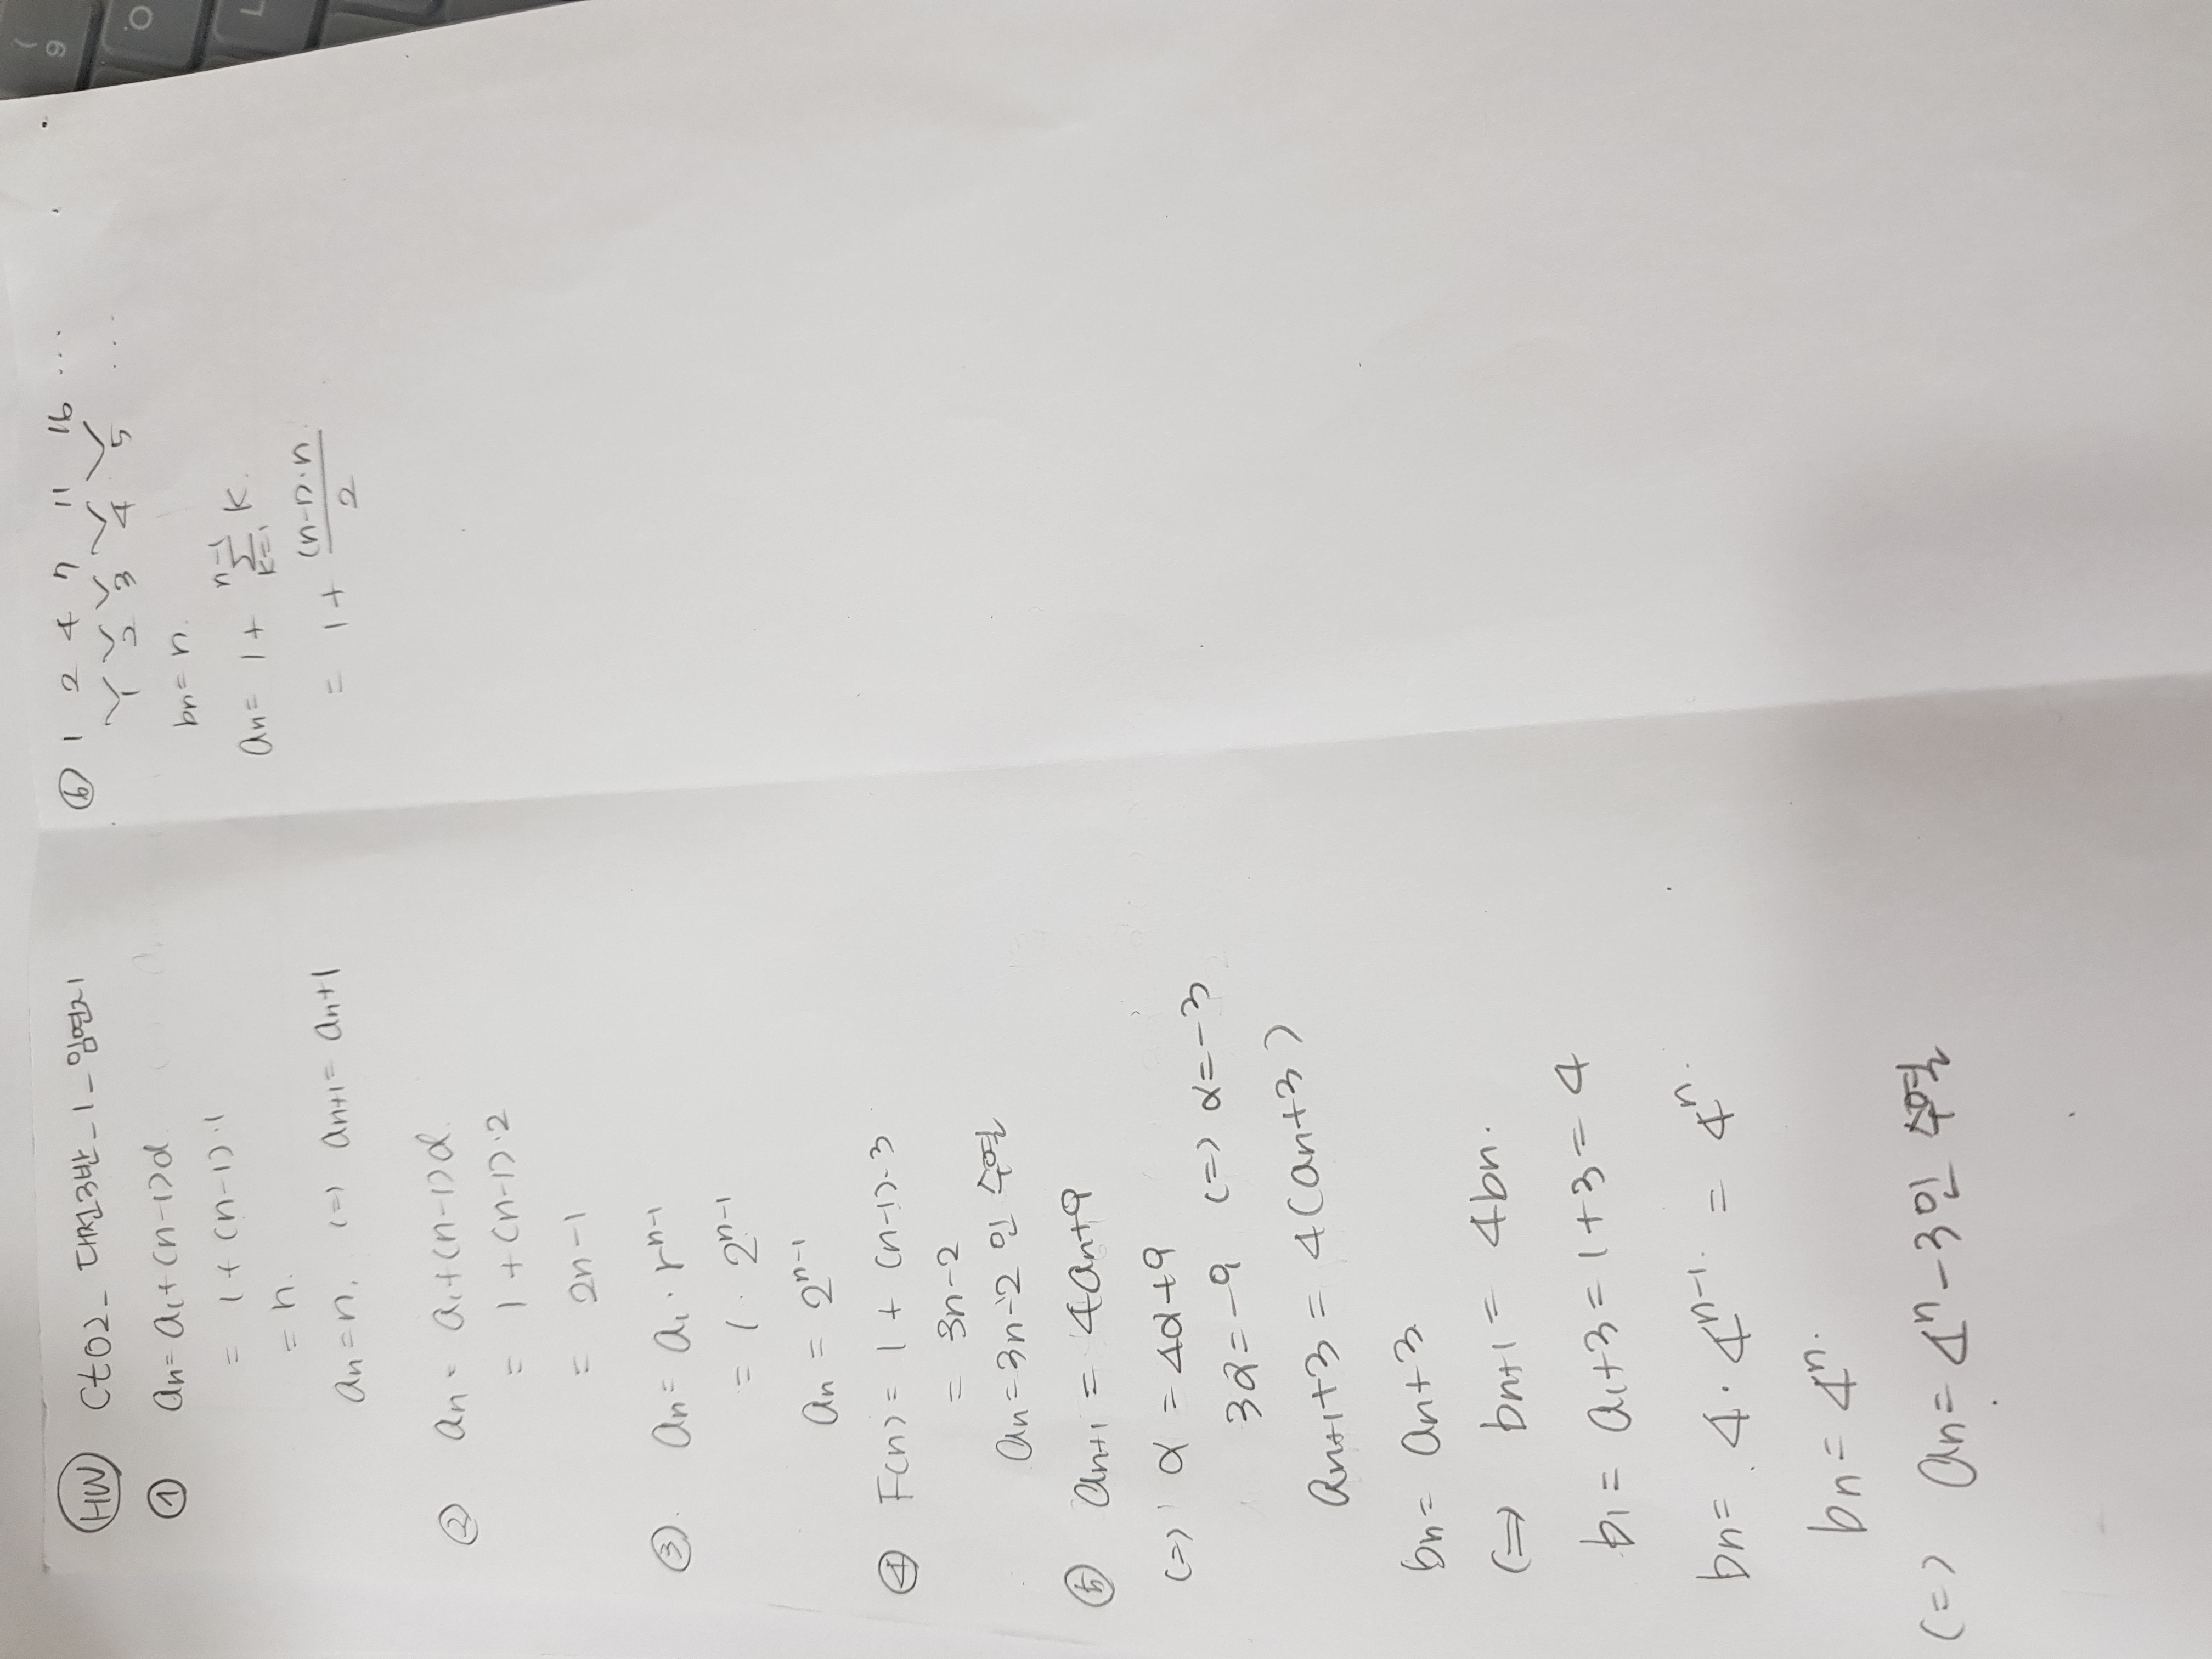 HW Ct02_대전3반_1_임연지
① an = a1+(n-1)d
= 1+(n-1)·1
= n.
an=n. (=) an+1= an+1
② an = a1+(n-1)d.
= 1+(n-1)·2
= 2n-1
③. an= a1·r^n-1
= 1·2^n-1
an = 2^n-1
④ F(n)= 1 + (n-1)·3
= 3n-2
an=3n-2 인 수열
⑤ an+1 = 4an+9
(=) α = 4α+9
3α=-9 (=) α=-3
an+1+3 = 4(an+3)
bn= an+3
(=) bn+1= 4bn.
b1= a1+3=1+3=4
bn= 4·4^n-1. = 4^n.
bn=4^n.
(=) an=4^n-3인 수열
⑥ 1 2 4 7 11 16 ...
1 2 3 4 5 ...
bn=n.
n-1
an= 1+ Σ k.
k=1
(n-1)·n.
= 1+
2
9